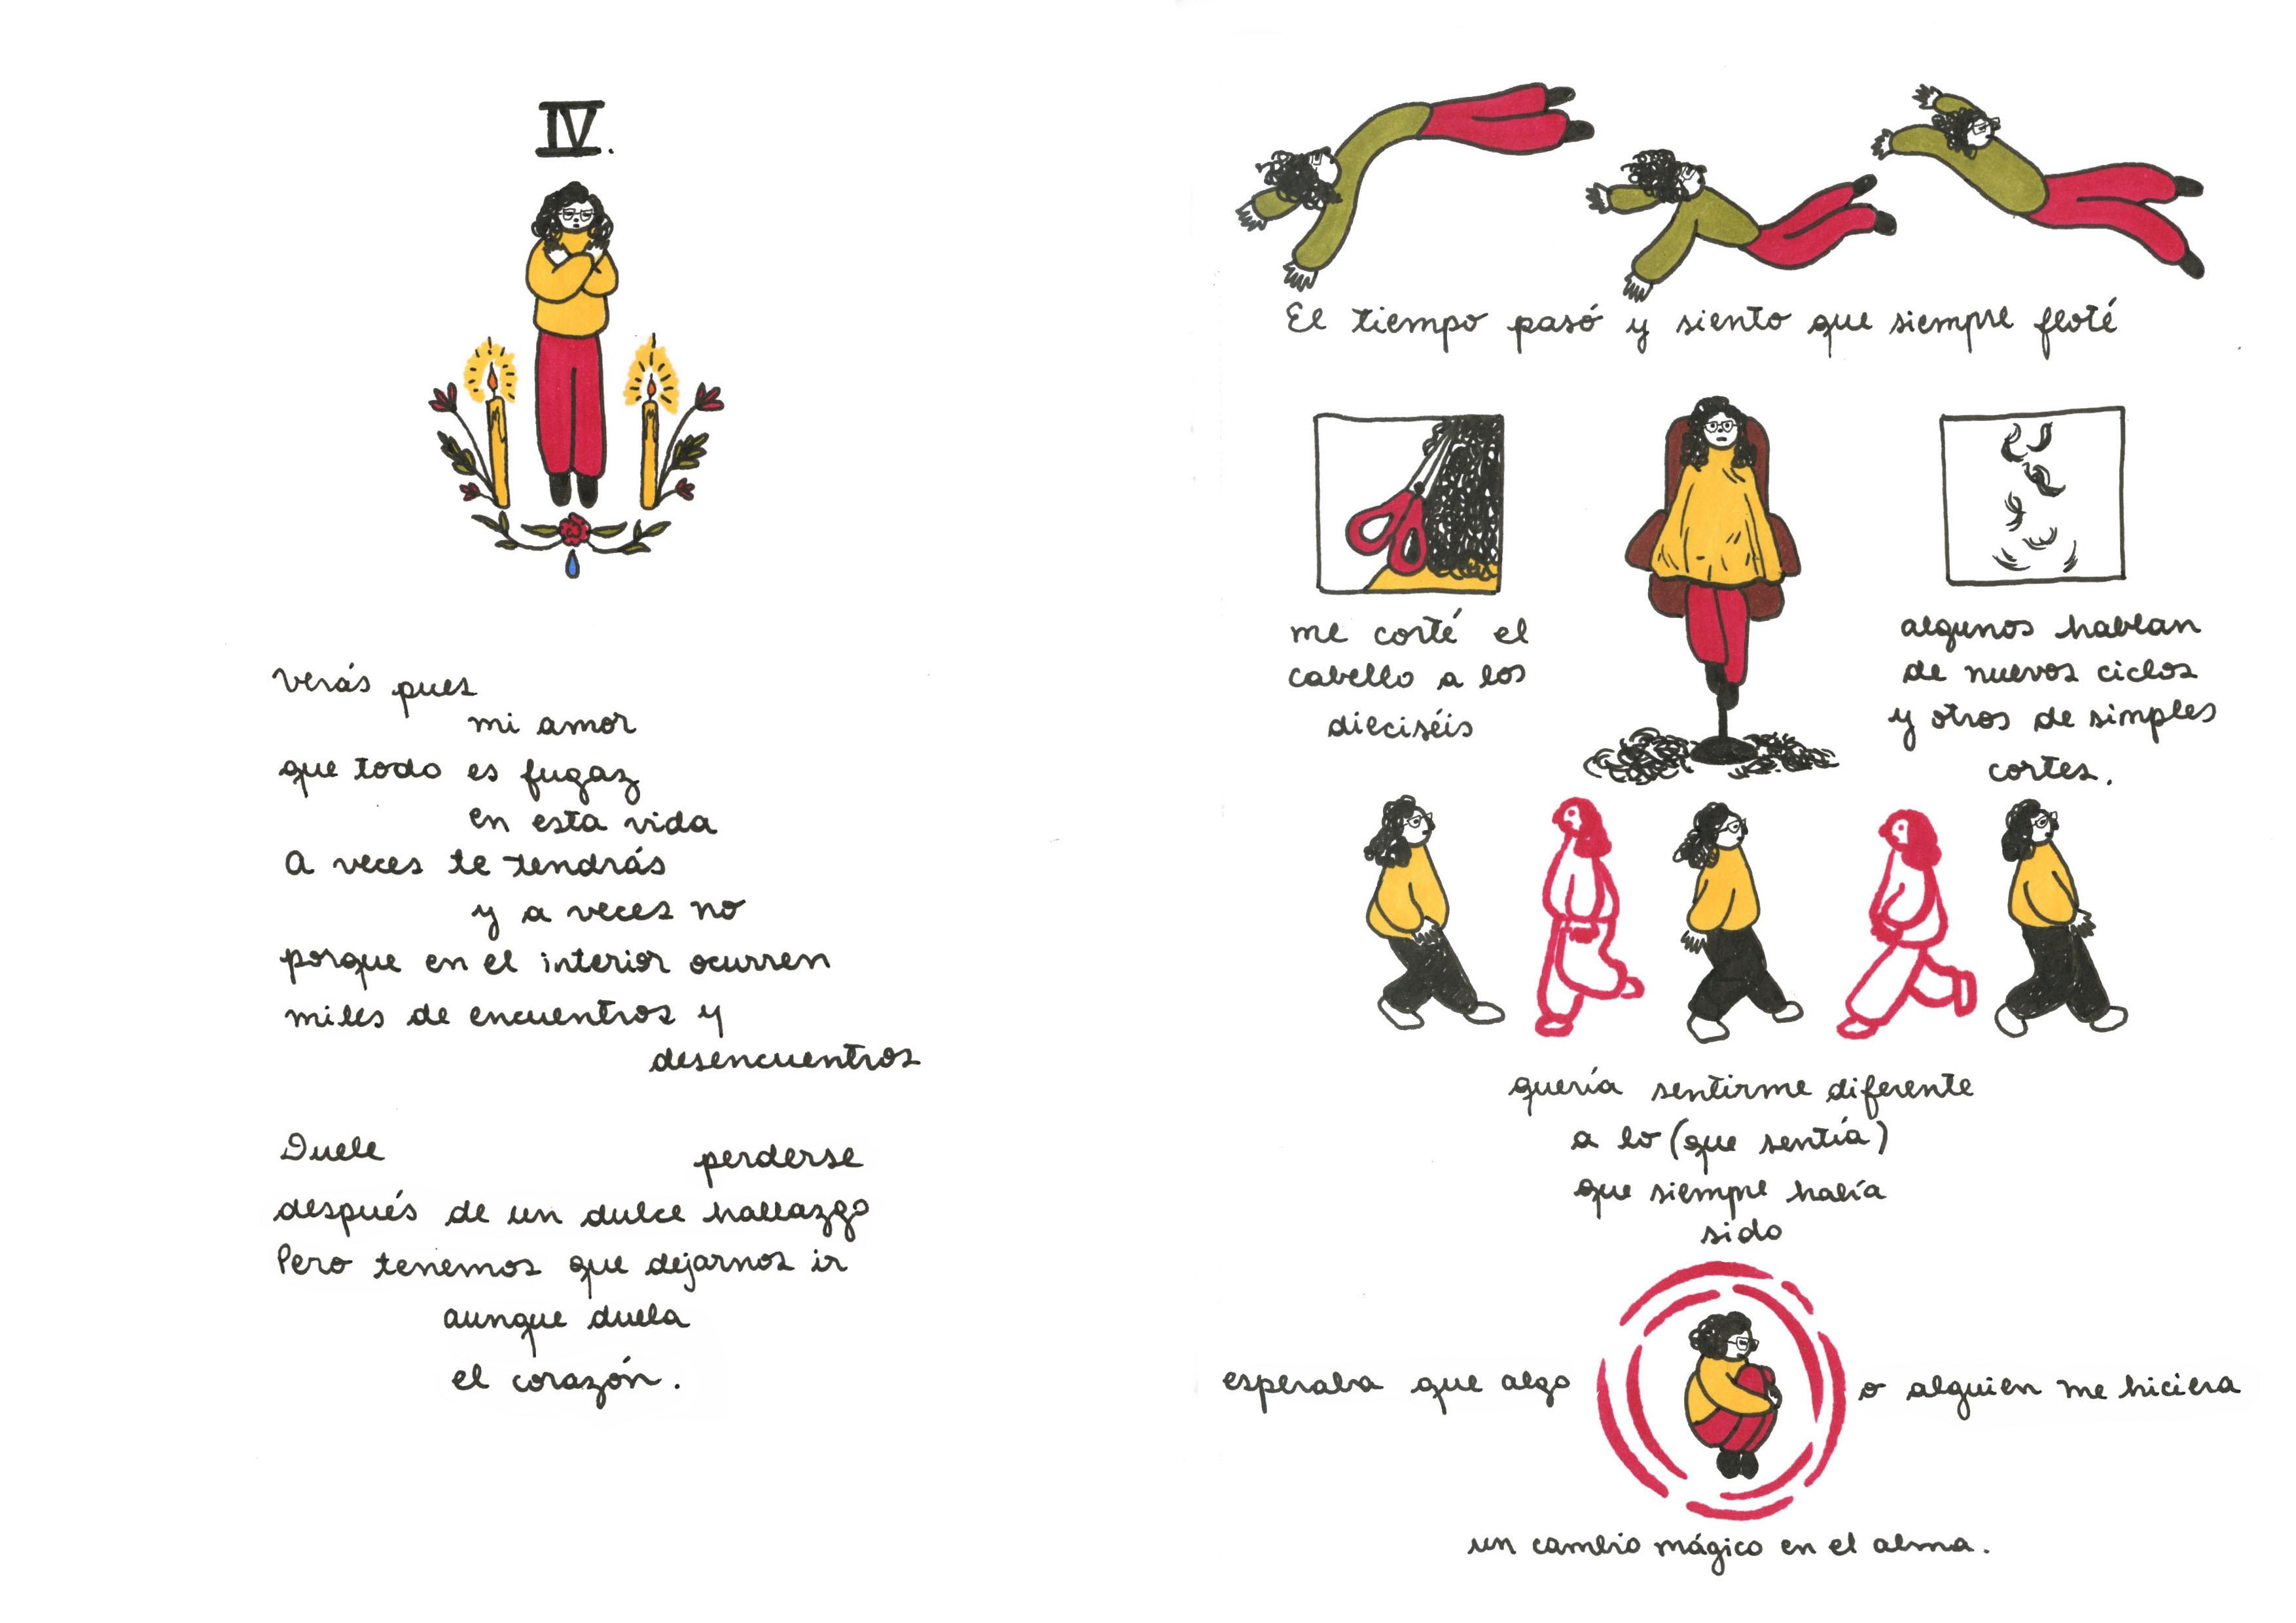 IV.
Verás pues
mi amor
que todo es fugaz
en esta vida
A veces te tendrás
y a veces no
porque en el interior ocurren
miles de encuentros y
desencuentros
Duele perderse
después de un dulce hallazgo
Pero tenemos que dejarnos ir
aunque duela
el corazón.
El tiempo pasó y siento que siempre floté
me corté el
cabello a los
dieciséis
algunos hablan
de nuevos ciclos
y otros de simples
cortes.
quería sentirme diferente
a lo (que sentía)
que siempre había
sido
esperaba que algo o alguien me hiciera
un cambio mágico en el alma.